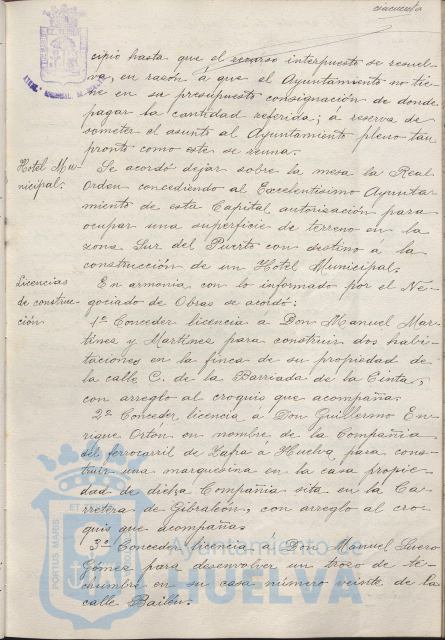 cincuenta
cipio hasta que el recurso interpuesto se resuel-
va, en razón á que el Ayuntamiento no tie-
ne en su presupuesto consignación de donde
pagar la cantidad referida; a reserva de
someter el asunto al Ayuntamiento pleno tan
pronto como este se reuna.
Hotel Mu-
nicipal.
Se acordó dejar sobre la mesa la Real
Orden concediendo al Excelentisimo Ayunta-
miento de esta Capital autorización para
ocupar una superficie de terreno en la
zona Sur del Puerto con destino á la
construcción de un Hotel Municipal.
Licencias
de construc-
ción
En armonia con lo informado por el Ne-
gociado de Obras se acordó:
1º Conceder licencia a Don Manuel Mar-
tinez y Martinez para construir dos habi-
taciones en la finca de su propiedad de
la calle C. de la Barriada de la Cinta,
con arreglo al croquis que acompaña.
2º Conceder licencia a Don Guillermo En-
rique Ortón en nombre de la Compañia
del ferrocarril de Zafra a Huelva para cons-
truir una marquesina en la casa propie-
dad de dicha Compañia sita en la Ca-
rretera de Gibraleón, con arreglo al cro-
quis que acompaña.
3º Conceder licencia á Don Manuel
Gómez para desenvolver un trozo de te-
chumbre en su casa número veinte de la
calle Bailén.
PORTUS MARIS
Ayuntamiento de
HUELVA